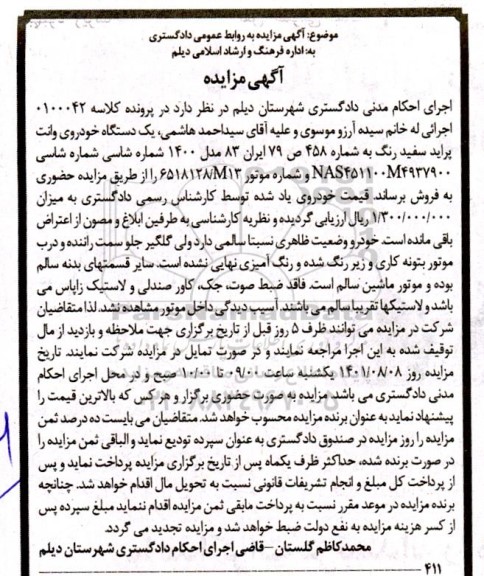 موضوع: آگهی مزایده به روابط عمومی دادگستری
به: اداره فرهنگ و ارشاد اسلامی دیلم
آگهی مزایده
اجرای احکام مدنی دادگستری شهرستان دیلم در نظر دارد در پرونده کلاسه ۰۱۰۰۰۴۲
اجرائی له خانم سیده آرزو موسوی و علیه آقای سیداحمد هاشمی، یک دستگاه خودروی وانت
پراید سفید رنگ به شماره ۴۵۸ ص ۷۹ ایران ۸۳ مدل ۱۴۰۰ شماره شاسی شماره شاسی
NAS۴۵۱۱۰۰M۴۹۳۷۹۰۰ و شماره موتور M۱۳/۶۵۱۸۱۲۸ را از طریق مزایده حضوری
به فروش برساند. قیمت خودروی یاد شده توسط کارشناس رسمی دادگستری به میزان
۱/۳۰۰/۰۰۰/۰۰۰ ریال ارزیابی گردیده و نظریه کارشناسی به طرفین ابلاغ و مصون از اعتراض
باقی مانده است. خودرو وضعیت ظاهری نسبتا سالمی دارد ولی گلگیر جلو سمت راننده و درب
موتور بتونه کاری و زیر رنگ شده و رنگ آمیزی نهایی نشده است. سایر قسمتهای بدنه سالم
بوده و موتور ماشین سالم است. فاقد ضبط صوت، جک، کاور صندلی و لاستیک زاپاس می
باشد و لاستیکها تقریبا سالم می باشند. آسیب دیدگی داخل موتور مشاهده نشد. لذا متقاضیان
شرکت در مزایده می توانند ظرف ۵ روز قبل از تاریخ برگزاری جهت ملاحظه و بازدید از مال
توقیف شده به این اجرا مراجعه نمایند و در صورت تمایل در مزایده شرکت نمایند. تاریخ
مزایده روز ۱۴۰۱/۰۸/۰۸ یکشنبه ساعت ۰۹/۰۰ تا ۱۰/۰۰ صبح و در محل اجرای احکام
مدنی دادگستری می باشد. مزایده به صورت حضوری برگزار و هر کس که بالاترین قیمت را
پیشنهاد نماید به عنوان برنده مزایده محسوب خواهد شد. متقاضیان می بایست ده درصد ثمن
مزایده را روز مزایده در صندوق دادگستری به عنوان سپرده تودیع نماید و الباقی ثمن مزایده را
در صورت برنده شده، حداکثر ظرف یکماه پس از تاریخ برگزاری مزایده پرداخت نماید و پس
از پرداخت کل مبلغ و انجام تشریفات قانونی نسبت به تحویل مال اقدام خواهد شد. چنانچه
برنده مزایده در موعد مقرر نسبت به پرداخت مابقی ثمن مزایده اقدام ننماید مبلغ سپرده پس
از کسر هزینه مزایده به نفع دولت ضبط خواهد شد و مزایده تجدید می گردد.
محمدکاظم گلستان - قاضی اجرای احکام دادگستری شهرستان دیلم
۴۱۱